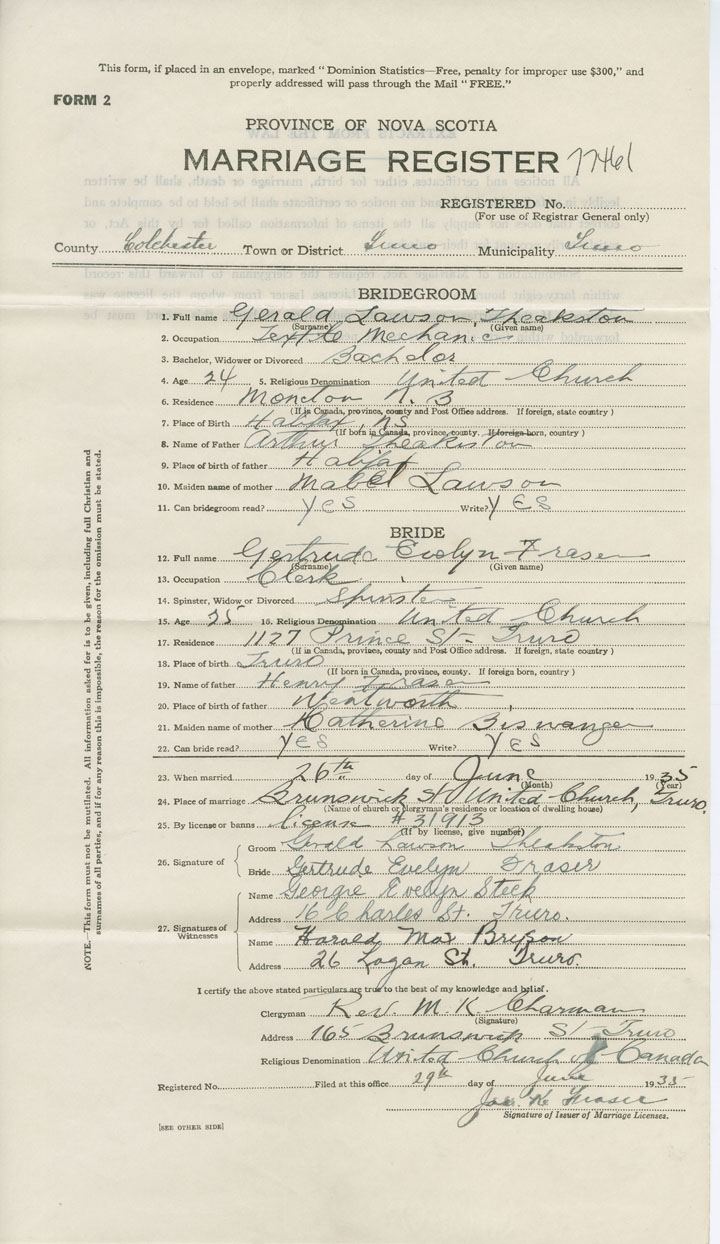 This form, if placed in an envelope, marked "Dominion Statistics—Free, penalty for improper use $300," and
properly addressed will pass through the Mail "FREE."
FORM 2
PROVINCE OF NOVA SCOTIA
MARRIAGE REGISTER 77461
REGISTERED No.
(For use of Registrar General only)
County Colchester Town or District Truro Municipality Truro
BRIDEGROOM
1. Full name Gerald Lawson Theakston
(Surname) (Given name)
2. Occupation Textile Mechanic
3. Bachelor, Widower or Divorced Bachelor
4. Age 24 5. Religious Denomination United Church
6. Residence Moncton N.B
(If in Canada, province, county and Post Office address. If foreign, state country )
7. Place of Birth Halifax, NS
(If born in Canada, province, county. If foreign born, country )
8. Name of Father Arthur Theakston
9. Place of birth of father Halifax
10. Maiden name of mother Mabel Lawson
11. Can bridegroom read? Yes Write? Yes
BRIDE
12. Full name Gertrude Evelyn Fraser
(Surname) (Given name)
13. Occupation Clerk
14. Spinster, Widow or Divorced Spinster
15. Age 25 16. Religious Denomination United Church
17. Residence 1127 Prince St - Truro
(If in Canada, province, county and Post Office address. If foreign, state country )
18. Place of birth Truro
(If born in Canada, province, county. If foreign born, country )
19. Name of father Henry Fraser
20. Place of birth of father Wentworth
21. Maiden name of mother Katherine Biswanger
22. Can bride read? Yes Write? Yes
23. When married 26th day of June 1935
(Month) (Year)
24. Place of marriage Brunswick St United Church, Truro.
(Name of church or clergyman's residence or location of dwelling house)
25. By license or banns license # 31913
(If by license, give number)
26. Signature of
Groom Gerald Lawson Theakston
Bride Gertrude Evelyn Fraser
27. Signatures of Witnesses
Name Georgie Evelyn Steck
Address 16 Charles St. Truro.
Name Harold Max Bryson
Address 26 Logan St. Truro.
I certify the above stated particulars are true to the best of my knowledge and belief.
Clergyman Rev M. K. Charman
(Signature)
Address 165 Brunswick St Truro
Religious Denomination United Church of Canada
Registered No. Filed at this office 29th day of June 1935
Fraser
Signature of Issuer of Marriage Licenses.
[SEE OTHER SIDE]
NOTE.—This form must not be mutilated. All information asked for is to be given, including full Christian and
surnames of all parties, and if for any reason this is impossible, the reason for the omission must be stated.